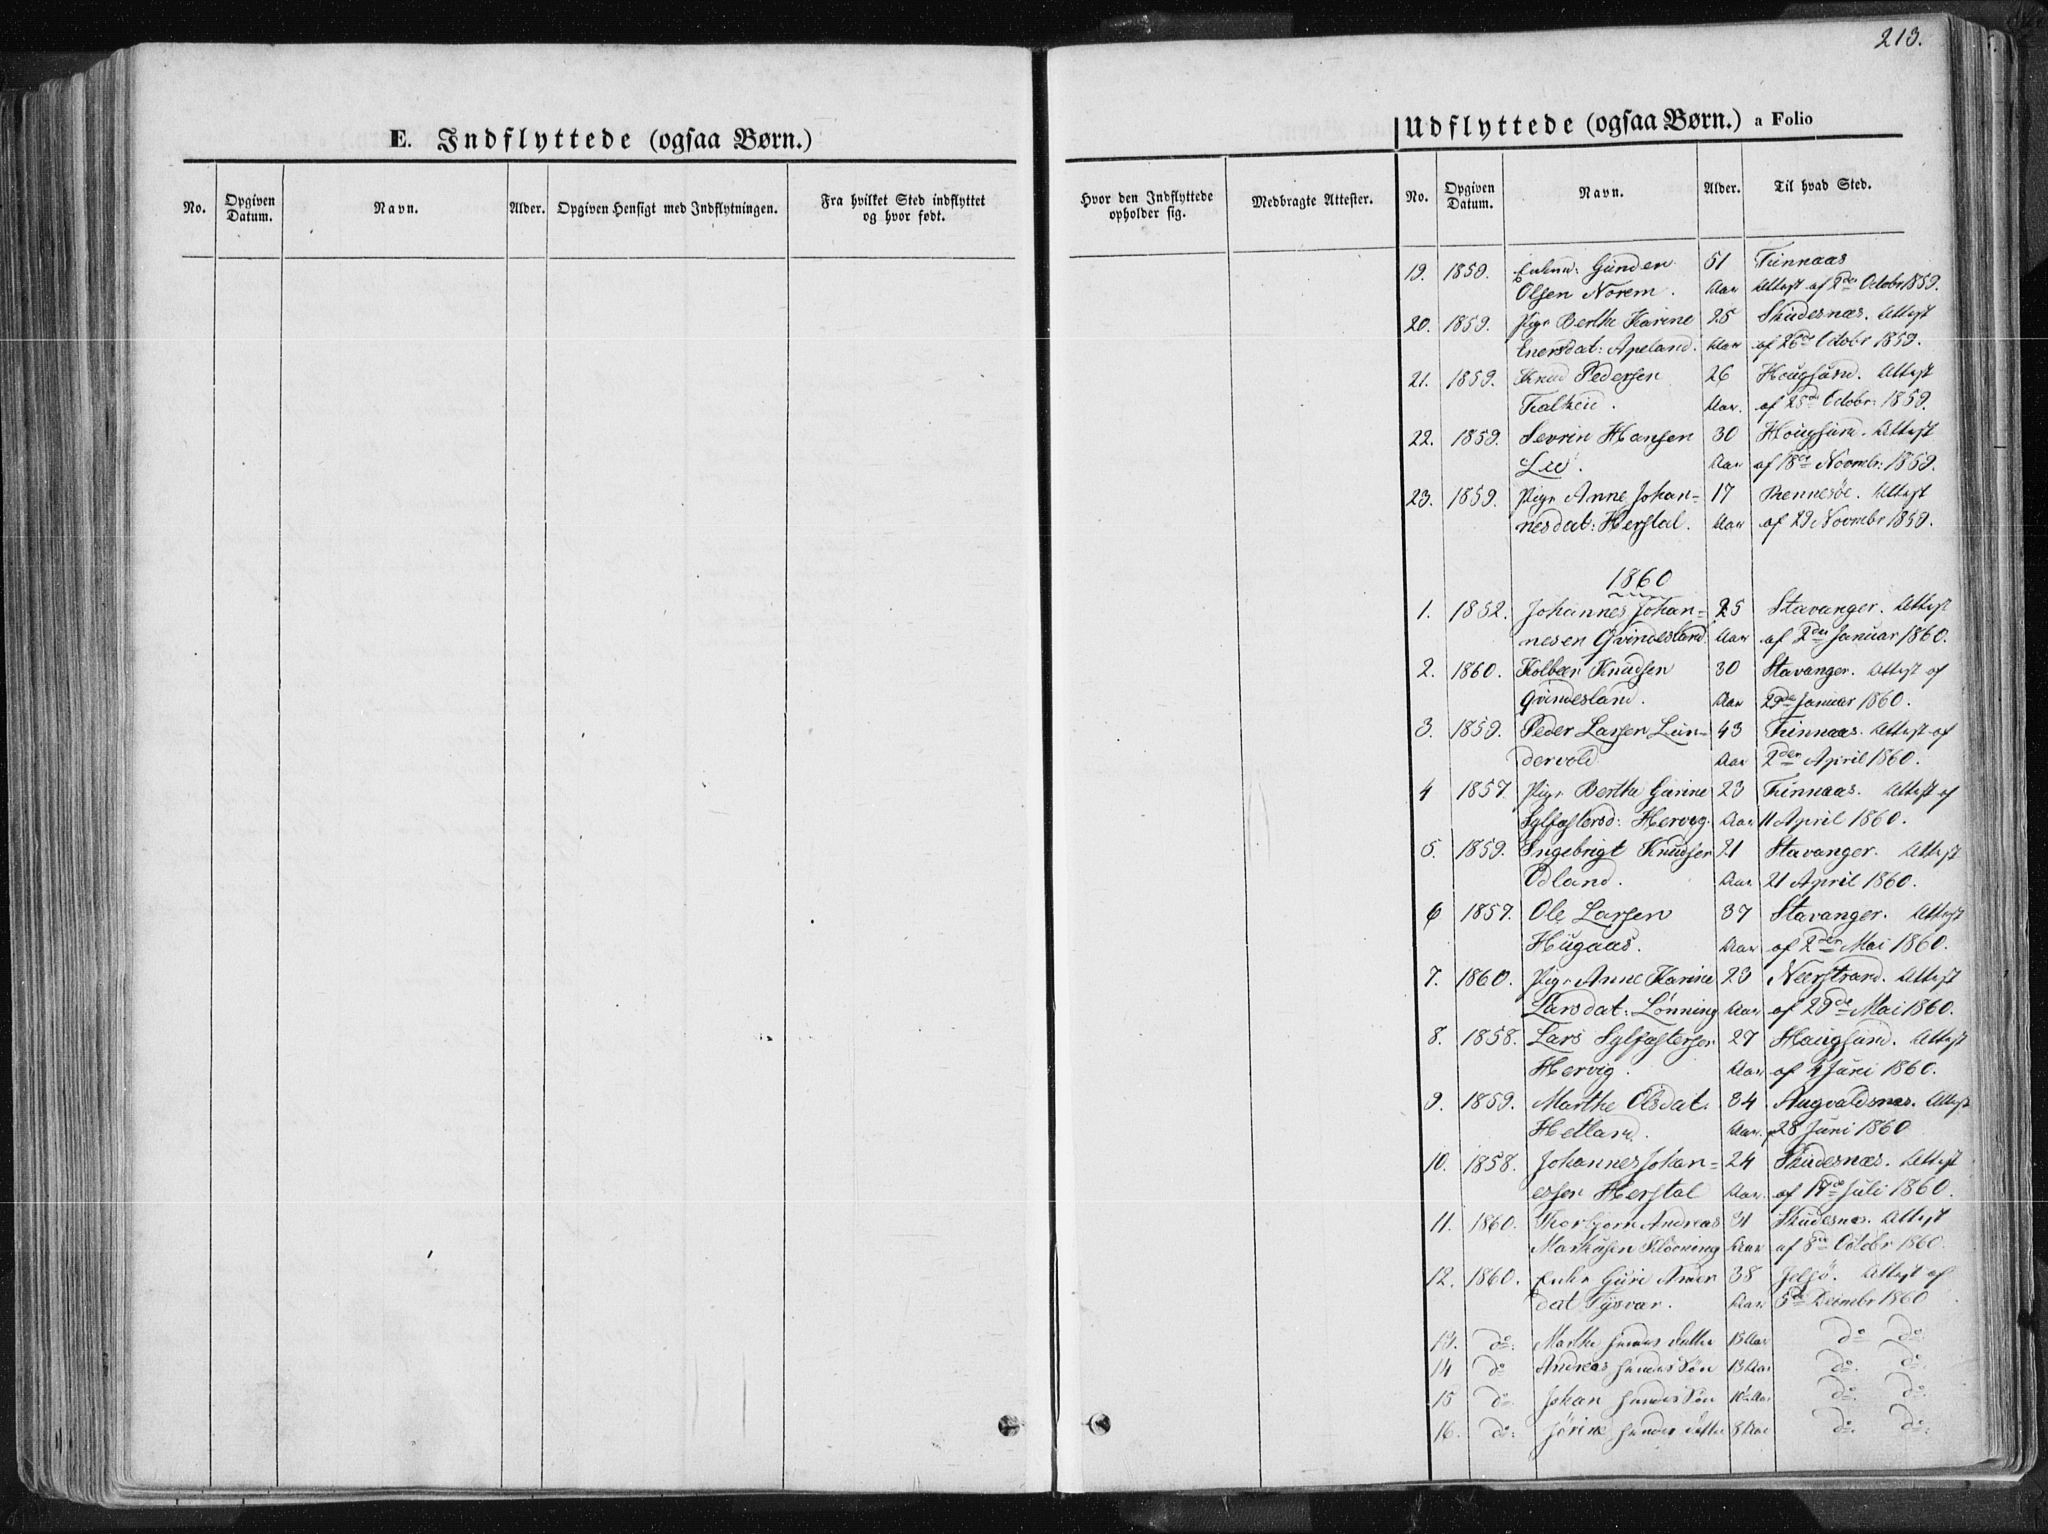 213.
E. Indflyttede (ogsaa Børn.)
No.
Opgiven Datum.
Navn.
Alder.
Opgiven Hensigt med Indflytningen.
Fra hvilket Sted indflyttet og hvor født.
Hvor den Indflyttede opholder sig.
Medbragte Attester.
Udflyttede (ogsaa Børn.) a Folio
No.
Opgiven Datum.
Navn.
Alder.
Til hvad Sted.
19. 1859. Gunder 51 Finnaas
Olsen Norem. Aar Attest af 2den Octobr 1859.
20. 1859. Pige Berthe Karine 25 Skudesnæs. Attest
Enersdat: Apeland. Aar af 26de Octobr 1859.
21. 1859. Knud Pedersen 26 Hougsund. Attest
Falkeid. Aar. af 28de Octobr: 1859.
22. 1859. Sevrin Hansen 30 Hougsund. Attest
Lie. Aar af 18de Novmbr: 1859.
23. 1859. Pige Anne Johan- 17 Rennesøe. Attest
nesdat: Herstal. Aar af 29 Novmbr 1859.
1860
1. 1852. Johannes Johan- 25 Stavanger. Attest
nesen Gvindesland. Aar af 2den Januar 1860.
2. 1860. Kolbær Knudsen 30 Stavanger. Attest af
Gvindesland. Aar 29de Januar 1860.
3. 1859. Peder Larsen Lun- 43 Finnaas. Attest af
dervold. Aar 2den April 1860.
4 1857. Pige Berthe Gurine 23 Finnaas. Attest af
Sylfæstersd: Hervig. Aar 11 April 1860.
5. 1859. Ingebregt Knudsen 21 Stavanger. Attest
Odland. Aar 21 April 1860.
6 1857. Ole Larsen 37 Stavanger. Attest
Hugaas. Aar af 2den Mai 1860.
7. 1860. Pige Anne Karine 23 Neerstrand. Attest
Larsdat: Lønning Aar af 29de Mai 1860.
8. 1858. Lars Sylfæstersen 27 Haugsund. Attest
Hervig. Aar af 4 Juni 1860.
9. 1859. Marthe Olsdat. 34 Augvaldsnæs. Attest
Hetland. Aar. 28 Juni 1860
10. 1858. Johannes Johan- 24 Skudesnæs. Attest
essen Herstal Aar. af 17de Juli 1860.
11. 1860. Thorbjørn Andreas 31 Skudesnæs. Attest
Markusen Aar af 8de Octobr 1860.
12. 1860. Enke Guri 38 Jelsø. Attest af
dat Tysvær. Aar 5de Decembr 1860
13. do: Marthe hendes Datter 15 Aar do do
14 do Andreas hendes Søn 13 Aar do. do.
15 do. Johan hendes Søn 10 Aar do. do.
16. do: Jørine hendes Datter 8 Aar do. do.